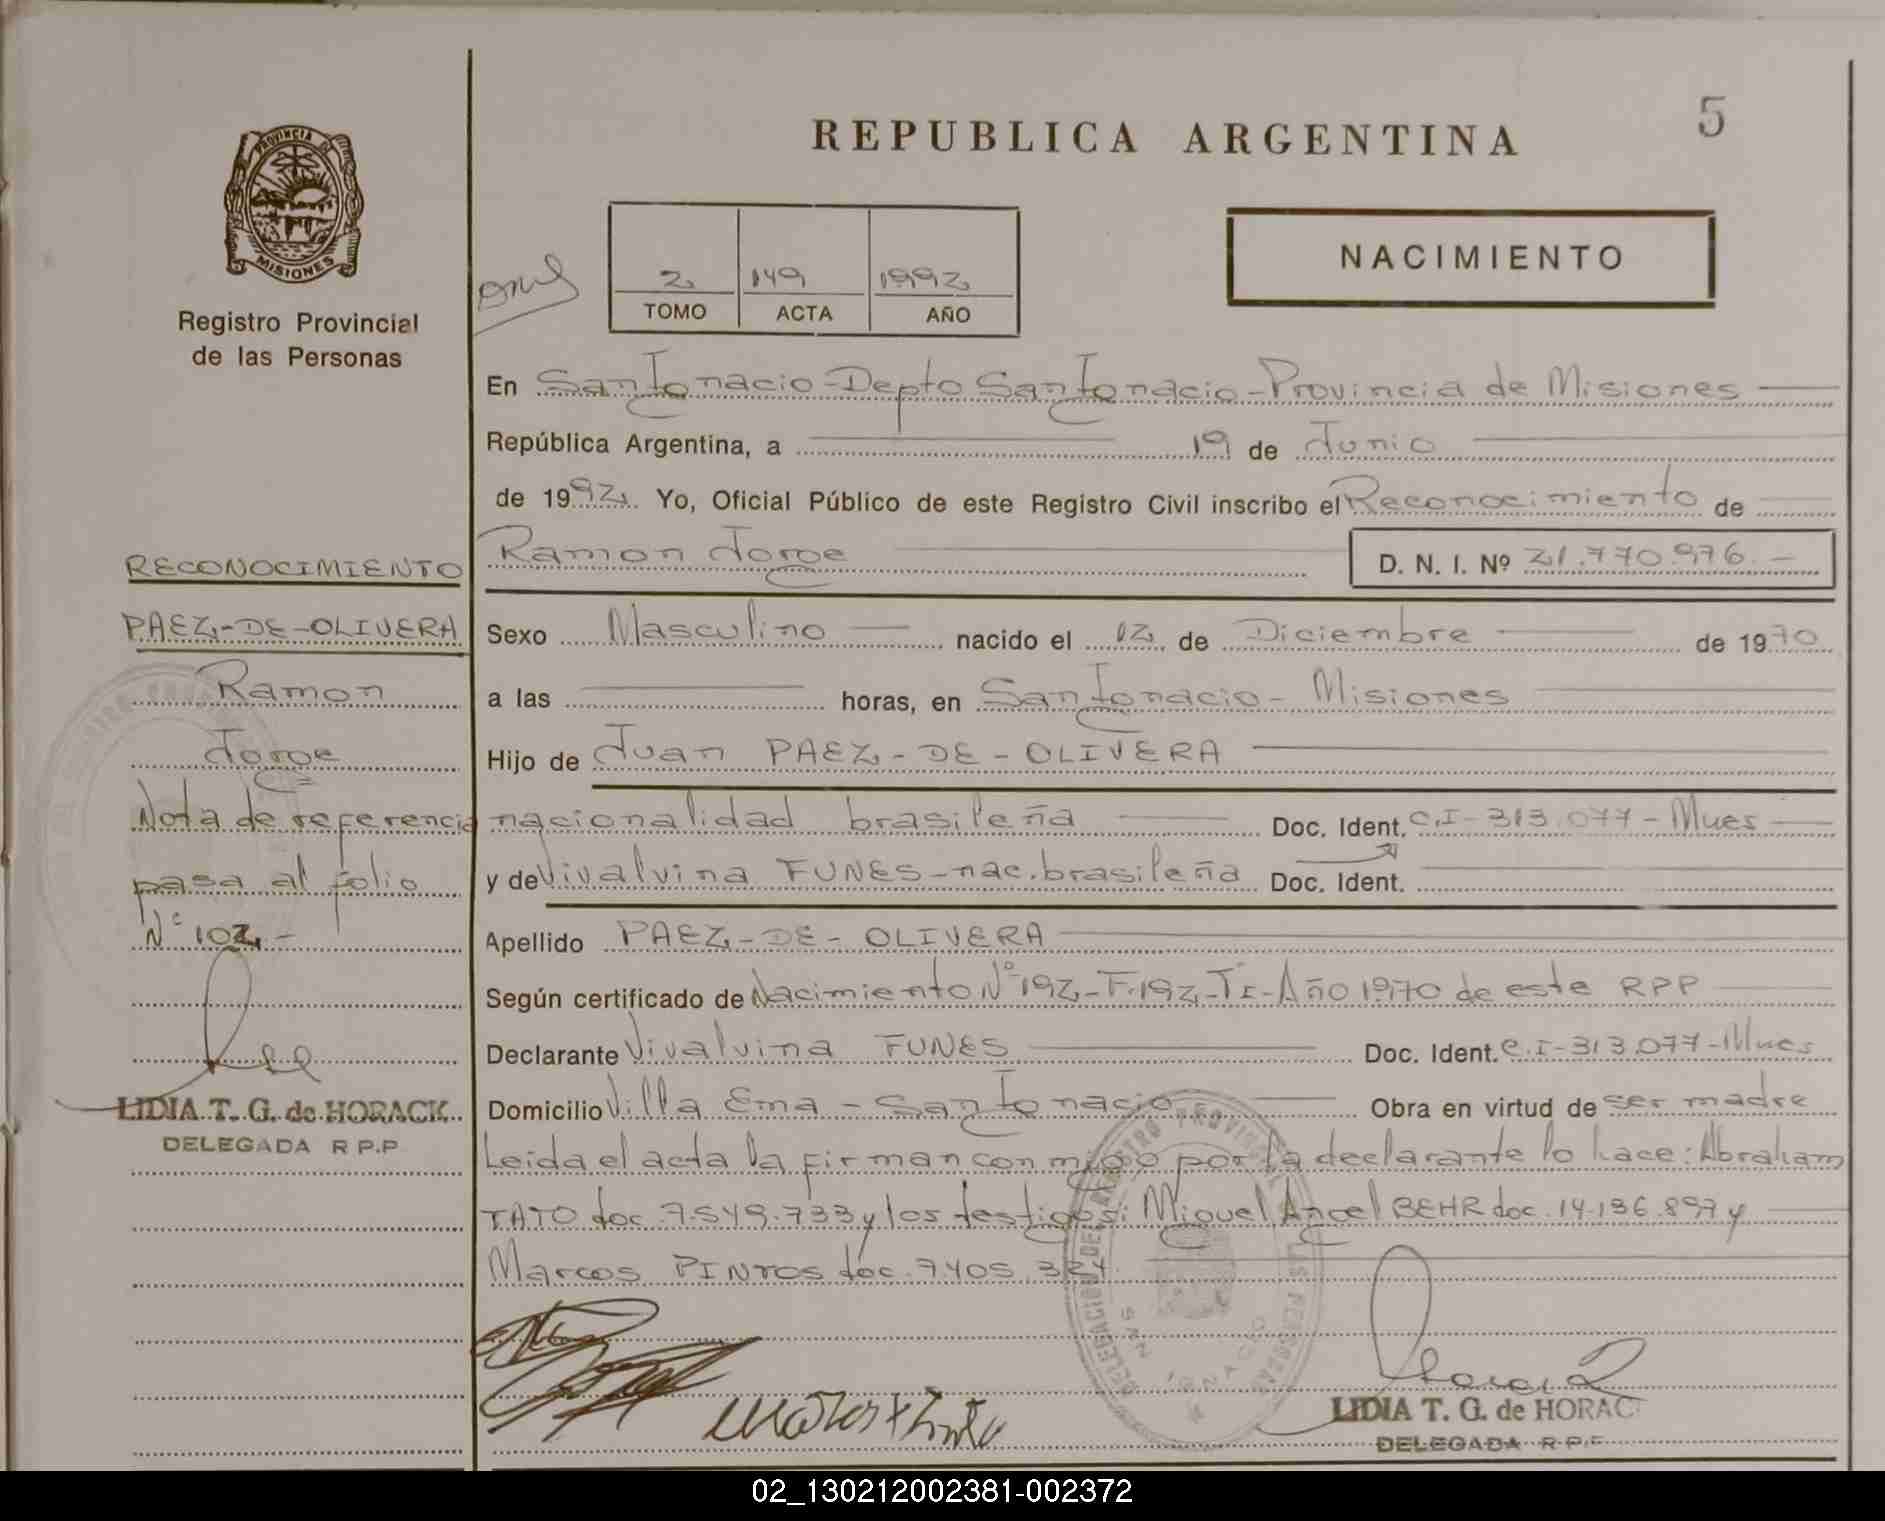 5
REPUBLICA ARGENTINA
PROVINCIA DE
MISIONES
Registro Provincial
de las Personas
2 149 1992
TOMO ACTA AÑO
NACIMIENTO
En San Ignacio - Depto San Ignacio - Provincia de Misiones
República Argentina, a 19 de Junio
de 1992. Yo, Oficial Público de este Registro Civil inscribo el Reconocimiento de
Ramon Jorge D. N. I. Nº 21.770.976.-
Sexo Masculino nacido el 12 de Diciembre de 1970
a las horas, en San Ignacio - Misiones
Hijo de Juan PAEZ-DE-OLIVERA
nacionalidad brasileña Doc. Ident. C.I-313.077-Mnes
y de Vivalvina FUNES-nac.brasileña Doc. Ident.
Apellido PAEZ-DE-OLIVERA
Según certificado de Nacimiento Nº192-F.192-TI-Año 1970 de este RPP
Declarante Vivalvina FUNES Doc. Ident. C.I-313.077-Mnes
Domicilio Villa Ema - San Ignacio Obra en virtud de ser madre
Leida el acta la firman conmigo por la declarante lo hace: Abraham
TATO doc.7.549.733 y los testigos: Miguel Angel BEHR doc.14.136.897 y
Marcos PINTOS doc.7.405.324.
LIDIA T. G. de HORAC
DELEGADA R.P.P
RECONOCIMIENTO
PAEZ-DE-OLIVERA
Ramon
Jorge
Nota de referencia
pasa al folio
Nº 102.-
LIDIA T. G. de HORACK
DELEGADA R P.P
02_130212002381-002372